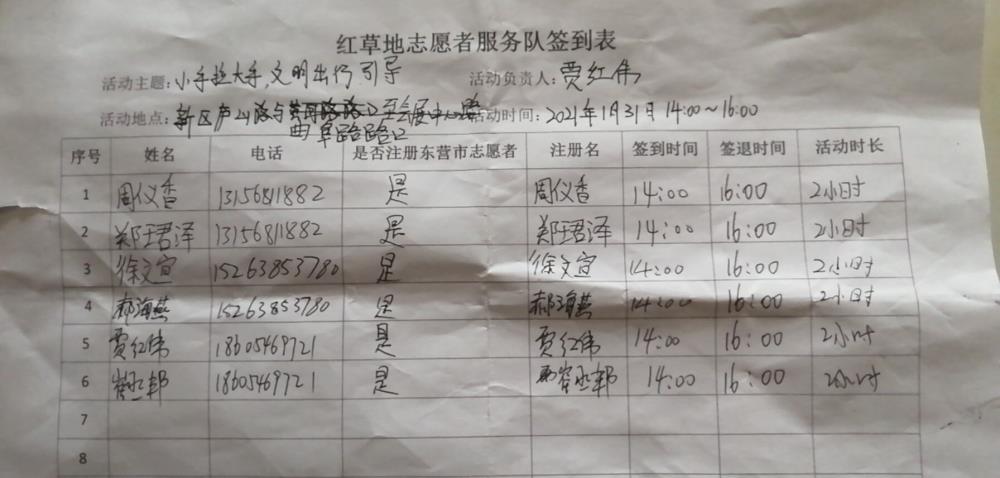 红草地志愿者服务队签到表
活动主题：小手拉大手，文明出行引导 活动负责人：贾红伟
活动地点：新区庐山路与 至会展中心路 活动时间：2021年1月31日 14:00～16:00
曲阜路路口
序号 姓名 电话 是否注册东营市志愿者 注册名 签到时间 签退时间 活动时长
1 周仪香 13156811882 是 周仪香 14:00 16:00 2小时
2 郑珺泽 13156811882 是 郑珺泽 14:00 16:00 2小时
3 徐文宣 15263853780 是 徐文宣 14:00 16:00 2小时
4 郝海燕 15263853780 是 郝海燕 14:00 16:00 2小时
5 贾红伟 18605469721 是 贾红伟 14:00 16:00 2小时
6 崔丞邦 18605469721 是 崔丞邦 14:00 16:00 2小时
7
8